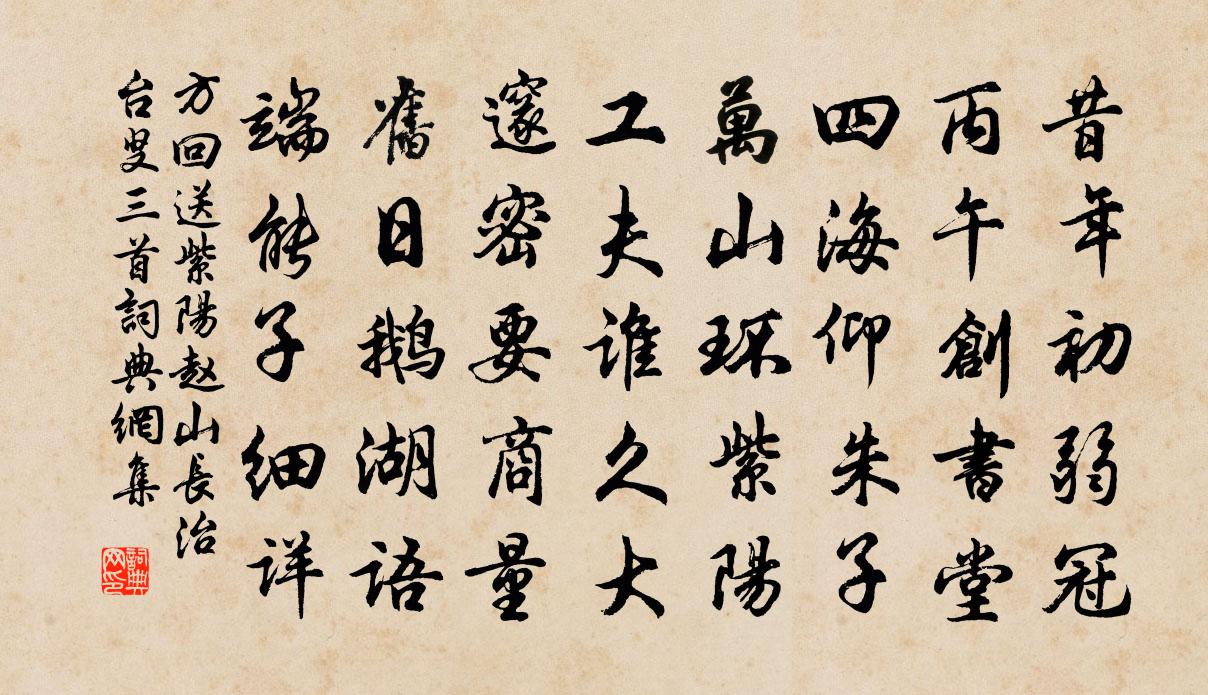 昔年初弱冠
丙午創書堂
四海仰朱子
萬山环紫陽
工夫谁久大
邃密要商量
舊日鹅湖语
端能子细详
方回送紫陽赵山長治
台叟三首詞典網集
詞典
网印